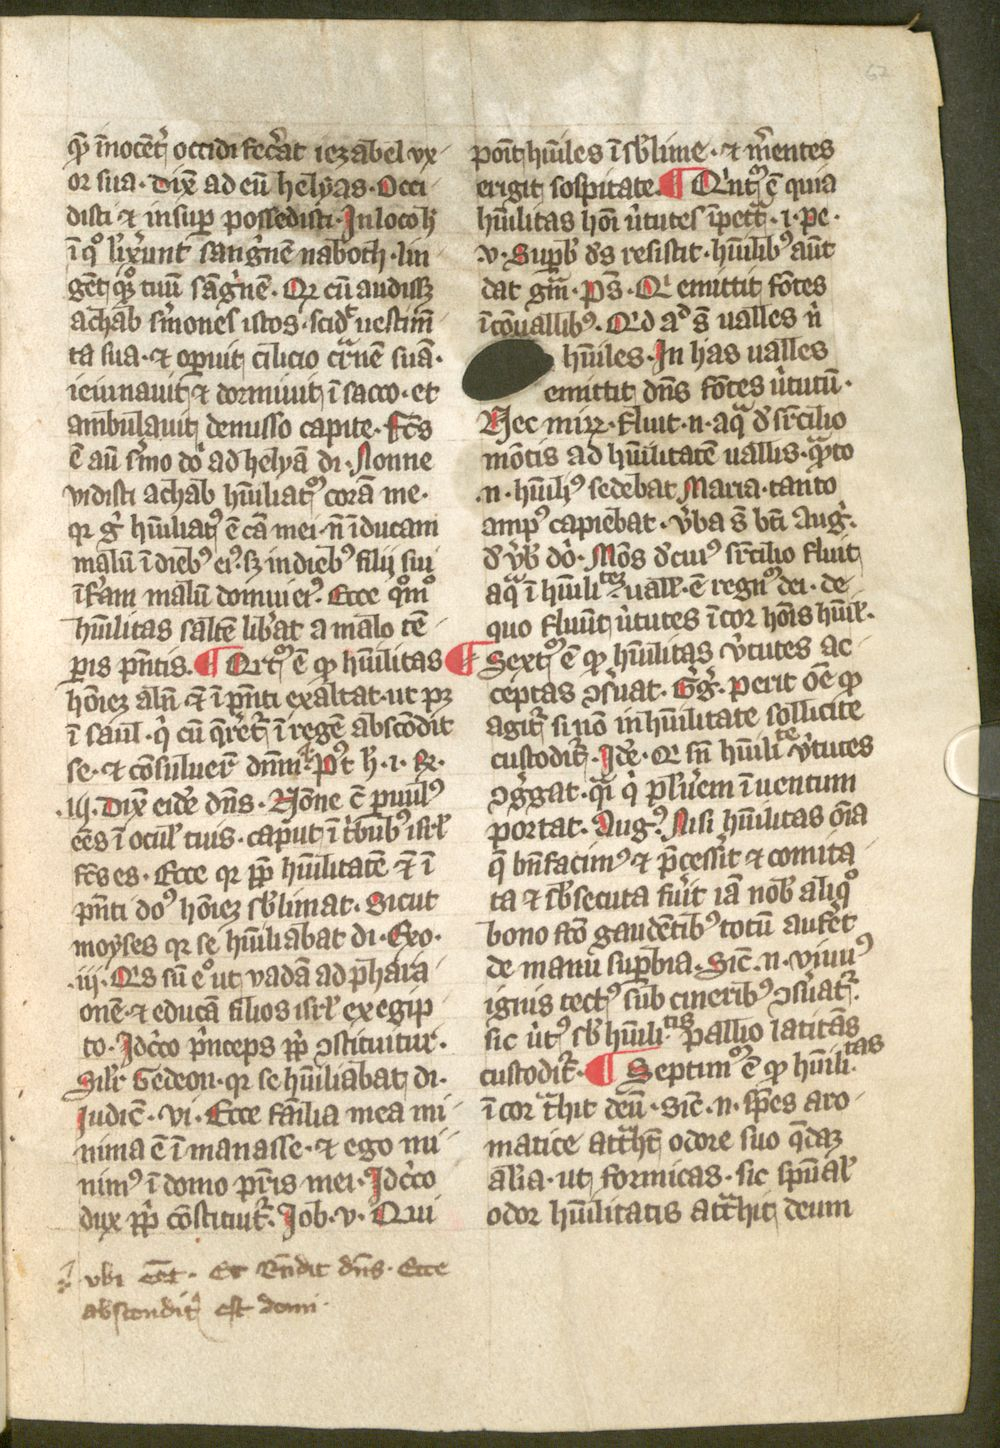 67
qͣ īnocēt̄ occidi fec̄at iezabel vx
or sua. Dix̄ ad eū helyas. Occi
disti et insuꝑ possedisti. In loco h̄
ī qͦ līx̄unt sangͥnē naboth. lin
gēt qͦꝫ tuū sāgͥnē. Qr cū audissꝫ
achab s̄mones istos. scid̄ vestim̄
ta sua. et oꝑuit cilicio cͣnē suā.
ieiunauit et dormiuit ī sacco. et
ambulauit demisso capite. Fc̄s
ē aū s̄mo dn̄i ad helyā di. Nonne
vidisti achab hūiliatꝰ corā me.
qr gͥ hūiliatꝰ ē cā mei. n̄ īducam
malū ī diebꝰ eiꝰ. sꝫ in diebꝰ filij sui
īfͣam malū domui eiꝰ. Ecce qͦmͦ
hūilitas saltē lib̄at a malo tē
ꝑis pn̄tis. ¶ Qrtꝰ ē qͥ hūilitas
hōieꝫ aln̄ et ī pn̄ti exaltat. ut pꝫ
ī saul. qͥ cū qͥreret̄ ī regē abscōdit
se. et cōsuluer̄ dn̄m. Pꝰt h̄. i. R̄.
.iij. Dix̄ eid̄ dn̄s. Nōne c̄ ꝑuulꝰ
ēēs ī ocul̄ tuis. caput ī tͥbubꝰ isrl̄
fc̄s es. Ecce qr ꝓp̄ hūilitatē et ī
pn̄ti doꝰ hōieꝫ sb̄limat. Sicut
moyses qr se hūiliabat di. Exo.
.iij. Qͥs sū eͦ ut vadā ad phara
onē. et educā filios isrl̄ ex egip
to. Idc̄co pͥnceps ꝓp̄ ꝯstituitur.
Silr̄ Gedeon. qr se hūiliabat di.
Iudic̄. vi. Ecce familia mea mi
nima ē ī manasse. et ego mi
nimꝰ ī domo pr̄is mei. Idc̄co
dux ꝓp̄ cōstituit̄. Iob. v. Qui
vbi eēt. Et Rn̄dit dn̄s. Ecce
absconditꝰ est domi.
pōit hūiles ī sb̄lime. et m̄entes
erigit sospitate. ¶ Qͥntꝰ ē quia
hūilitas hōi v̄tutes īpetͣt. i. pe.
v. Suꝑb̄ ds̄ resistit. hūilibꝰ aūt
dat gr̄m. Ps̄. Qͥ emittit fōtes
ī cōuallibꝰ. Qͥd aͩ s̄ ualles n̄
hūiles. In has ualles
emittit dn̄s fōtes v̄tutū.
Nec mirꝫ. fluit. n. aqͣ d̄ sr̄cilio
mōtis ad hūilitatē uallis. qͣto
.n. hūilꝰ sedebat Maria. tanto
ampꝰ capiebat. v̄ba s̄ bt̄i Augꝰ.
d̄ v̄b̄ do. Mōs d̄ cuiꝰ sr̄cilio fluit
aqͣ ī hūilitͣ uall̄. ē regnꝰ dei. de
quo fluūt v̄tutes ī cor hōis hūil̄.
¶ Sextꝰ ē qͥ hūilitas v̄tutes ac
ceptas ꝯs̄uat. Gg̊. Perit oē qͥ
agit̄ si nō in hūilitate sollicite
custodit̄. Idē. Qͥ sn̄ hūilite v̄tutes
ꝯg̊gat. qͣi qͥ pl̄u̾em ī uentum
portat. Augꝰ. Nisi hūilitas oīa
q̄ bn̄facimꝰ et p̄cess̄it et comita
ta et sb̄secuta fūit iā nob̄ aliqͦ
bono fc̄o gaudētibꝰ totū aufet
de manu suꝑbia. Sic̄. n. viuuꝰ
ignis tectꝰ sub cineribꝰ ꝯs̄uat̄.
sic v̄tꝰ sb̄ hūilitis pallio latitās
custodit̄. ¶ Septimꝰ ē qͥ hūilitas
ī cor tͣhit deū. Sic̄. n. sp̄es aro
matice atͣhūt odore suo qͣdaꝫ
alia. ut formicas. sic sp̄ual̄
odor hūilitatis atͣhit deum